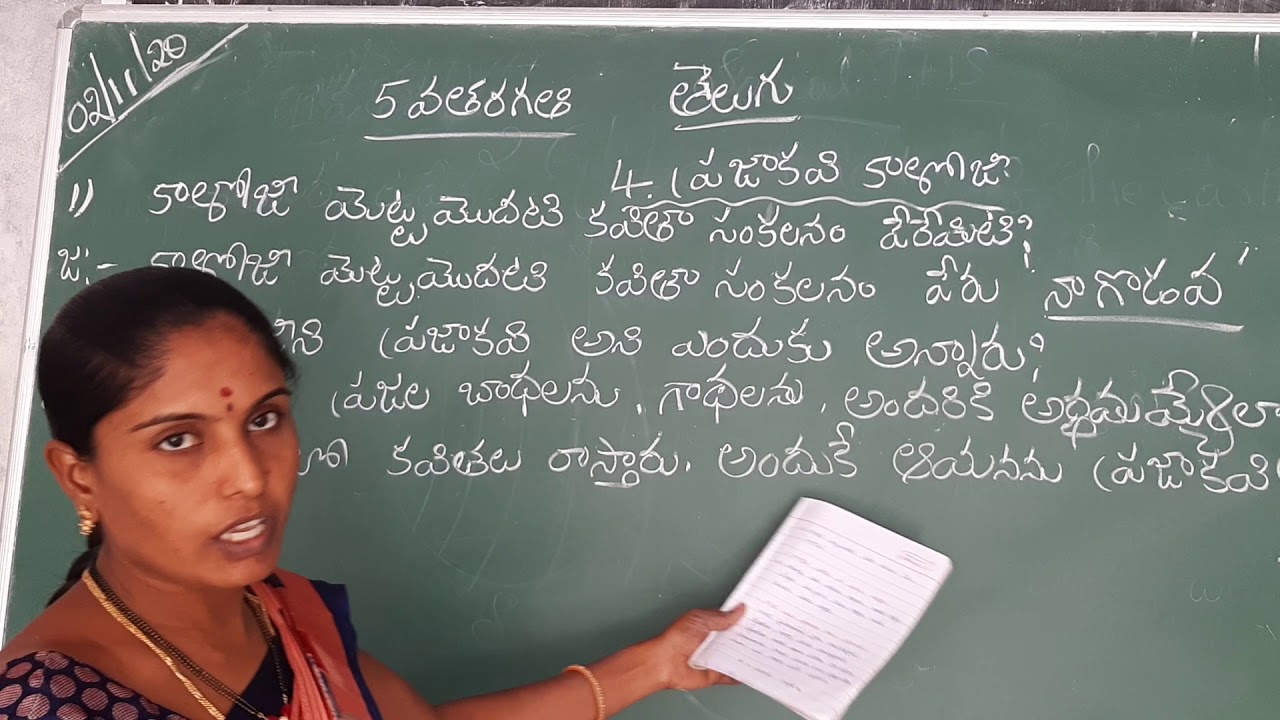 02/11/20
5వతరగతి తెలుగు
4. ప్రజాకవి కాళోజి
1) కాళోజీ మొట్టమొదటి కవితా సంకలనం పేరేమిటి?
జ:- కాళోజీ మొట్టమొదటి కవితా సంకలనం పేరు 'నాగొడవ'
ప్రజాకవి అని ఎందుకు అన్నారు?
ప్రజల బాధలను, గాథలను, అందరికి అర్థమయ్యేలా
కవితలు రాస్తారు. అందుకే ఆయనను ప్రజాకవి